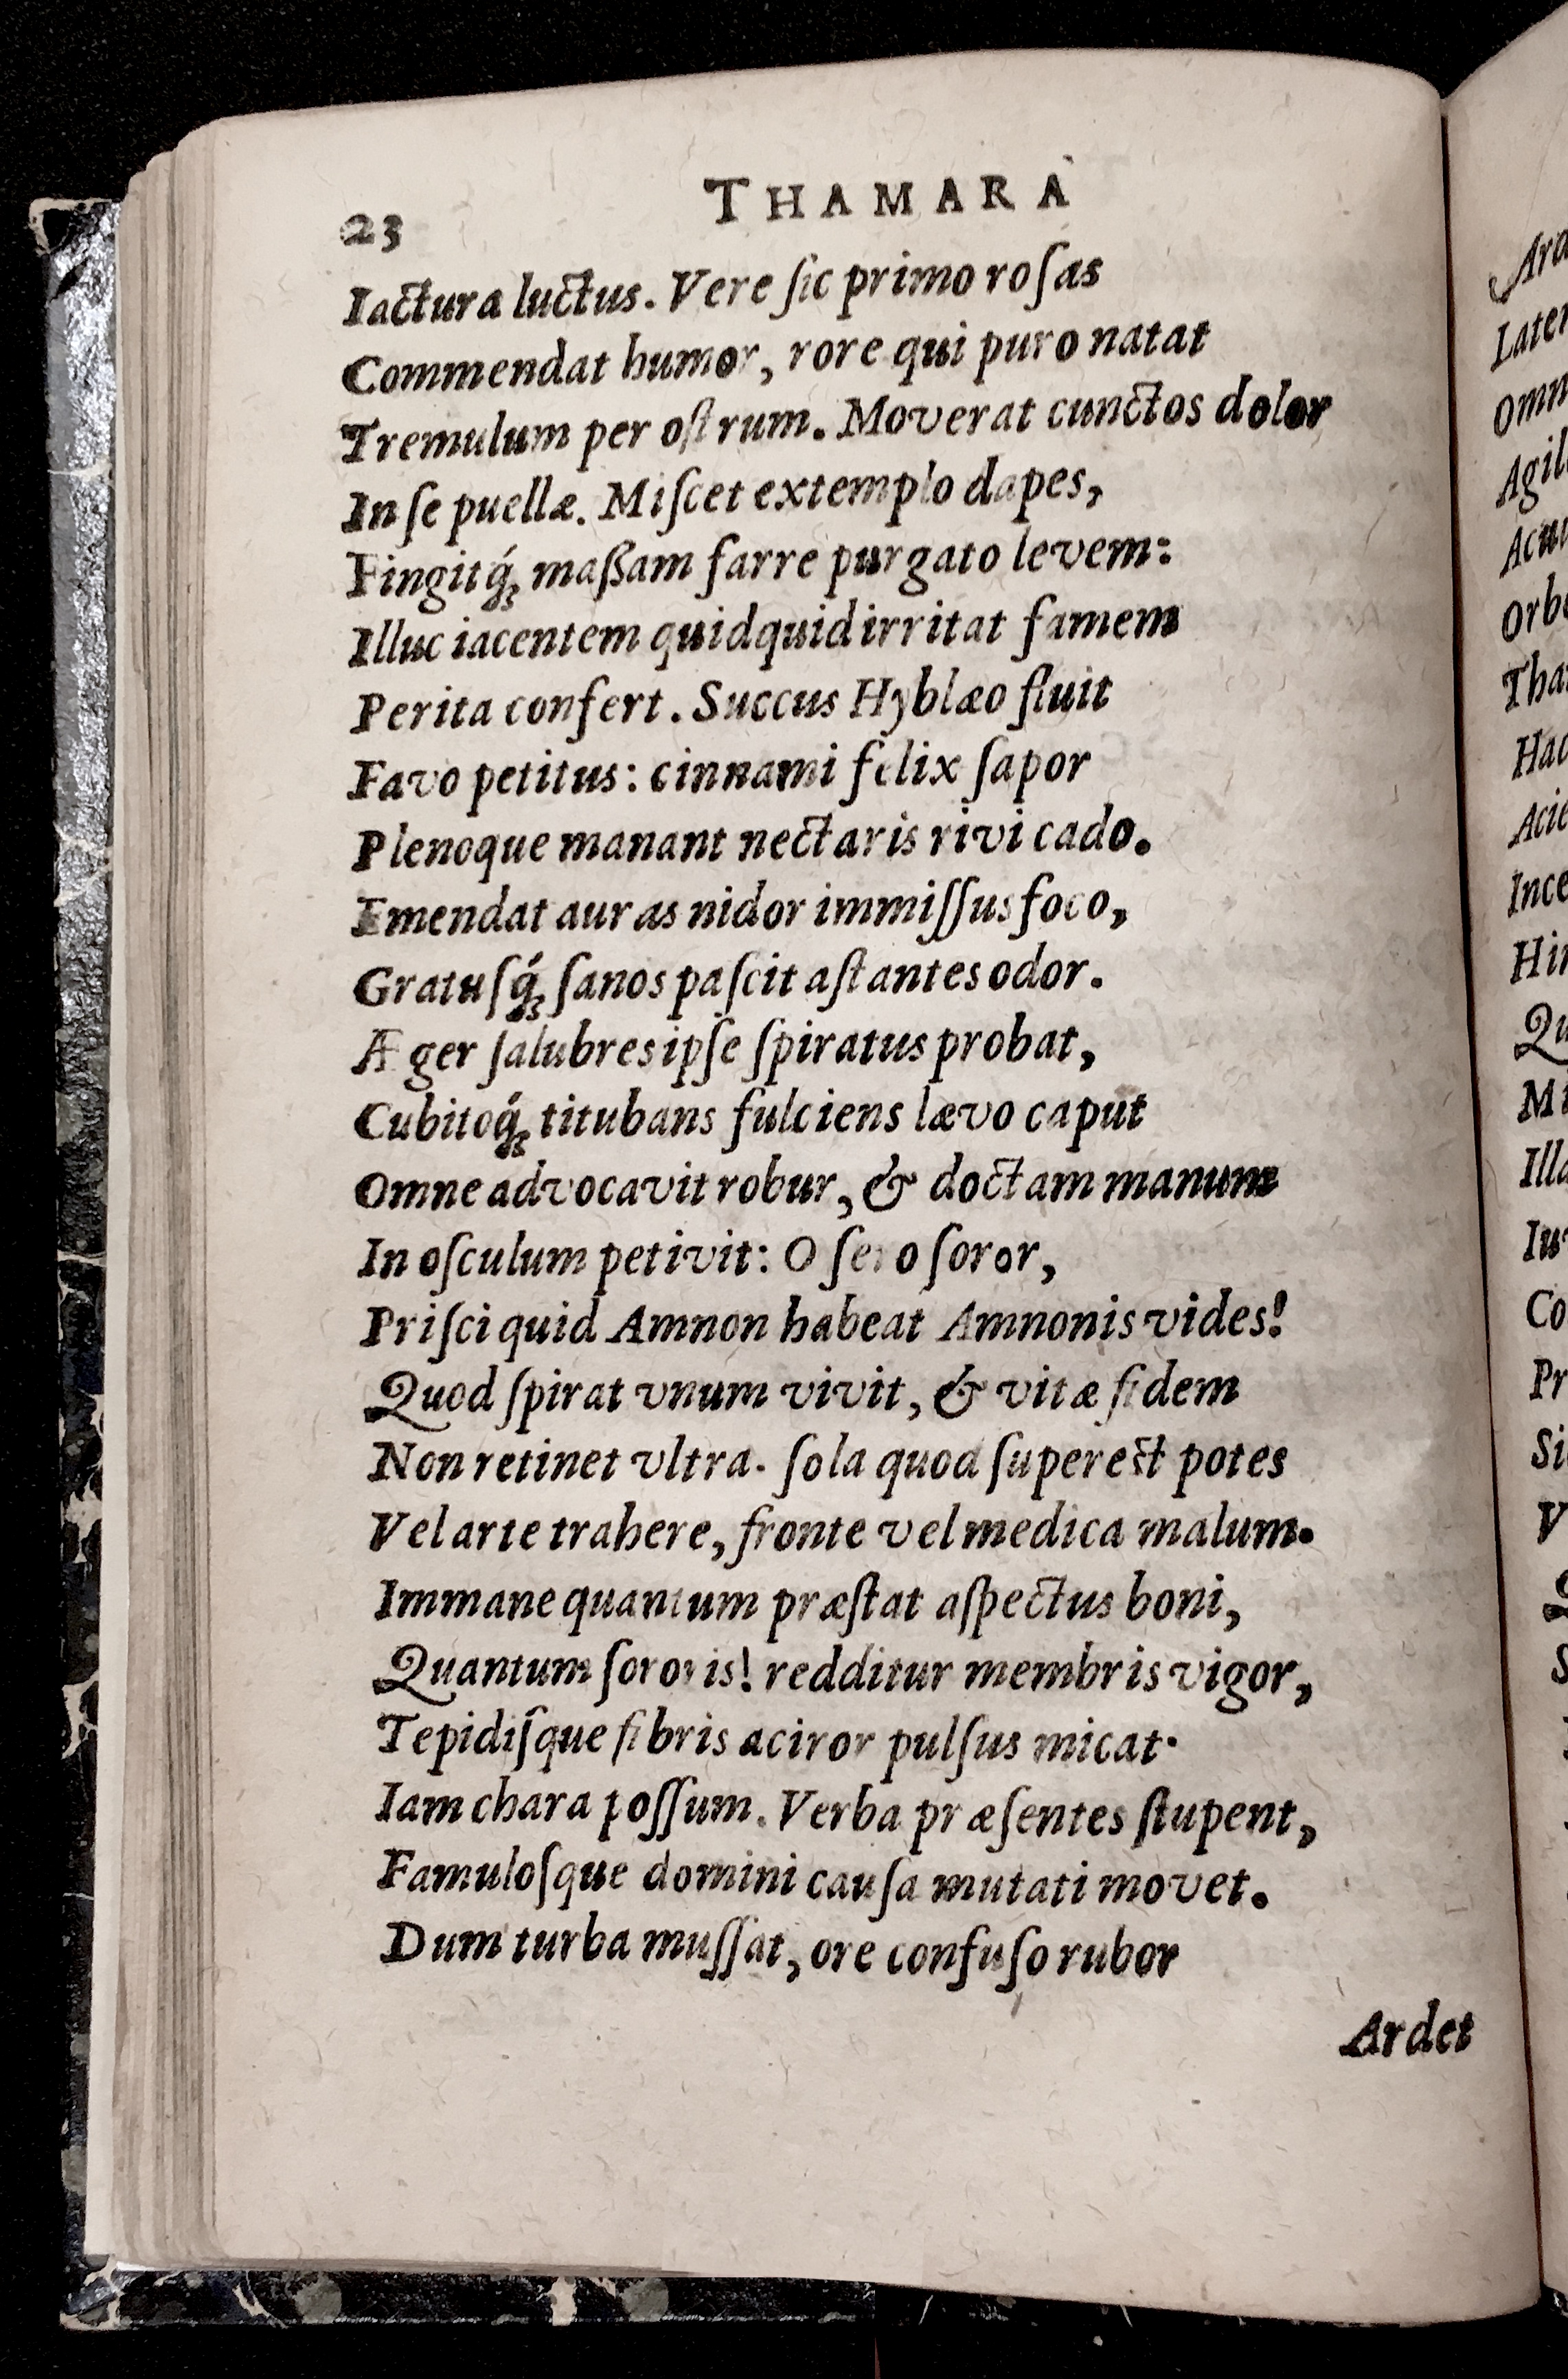 23 THAMARA
Iactura luctus. Vere ſic primo roſas
Commendat humor, rore qui puro natat
Tremulum per oſtrum. Moverat cunctos dolor
In ſe puellæ. Miſcet extemplo dapes,
Fingitq́ꝫ maßam farre purgato levem:
Illuc iacentem quidquid irritat famem
Perita confert. Succus Hyblæo fluit
Favo petitus: cinnami felix ſapor
Plenoque manant nectaris rivi cado.
Emendat auras nidor immiſſus foco,
Gratuſq́ꝫ ſanos paſcit aſtantes odor.
Æger ſalubres ipſe ſpiratus probat,
Cubitoq́ꝫ titubans fulciens lævo caput
Omne advocavit robur, & doctam manum
In oſculum petivit: O ſero ſoror,
Priſci quid Amnon habeat Amnonis vides!
Quod ſpirat vnum vivit, & vitæ fidem
Non retinet vltra. ſola quod ſupereſt potes
Vel arte trahere, fronte vel medica malum.
Immane quantum præſtat aſpectus boni,
Quantum ſororis! redditur membris vigor,
Tepidiſque fibris aciror pulſus micat.
Iam chara poſſum. Verba præſentes ſtupent,
Famuloſque domini cauſa mutati movet.
Dum turba muſſat, ore confuſo rubor
Ardet
Later
Agil